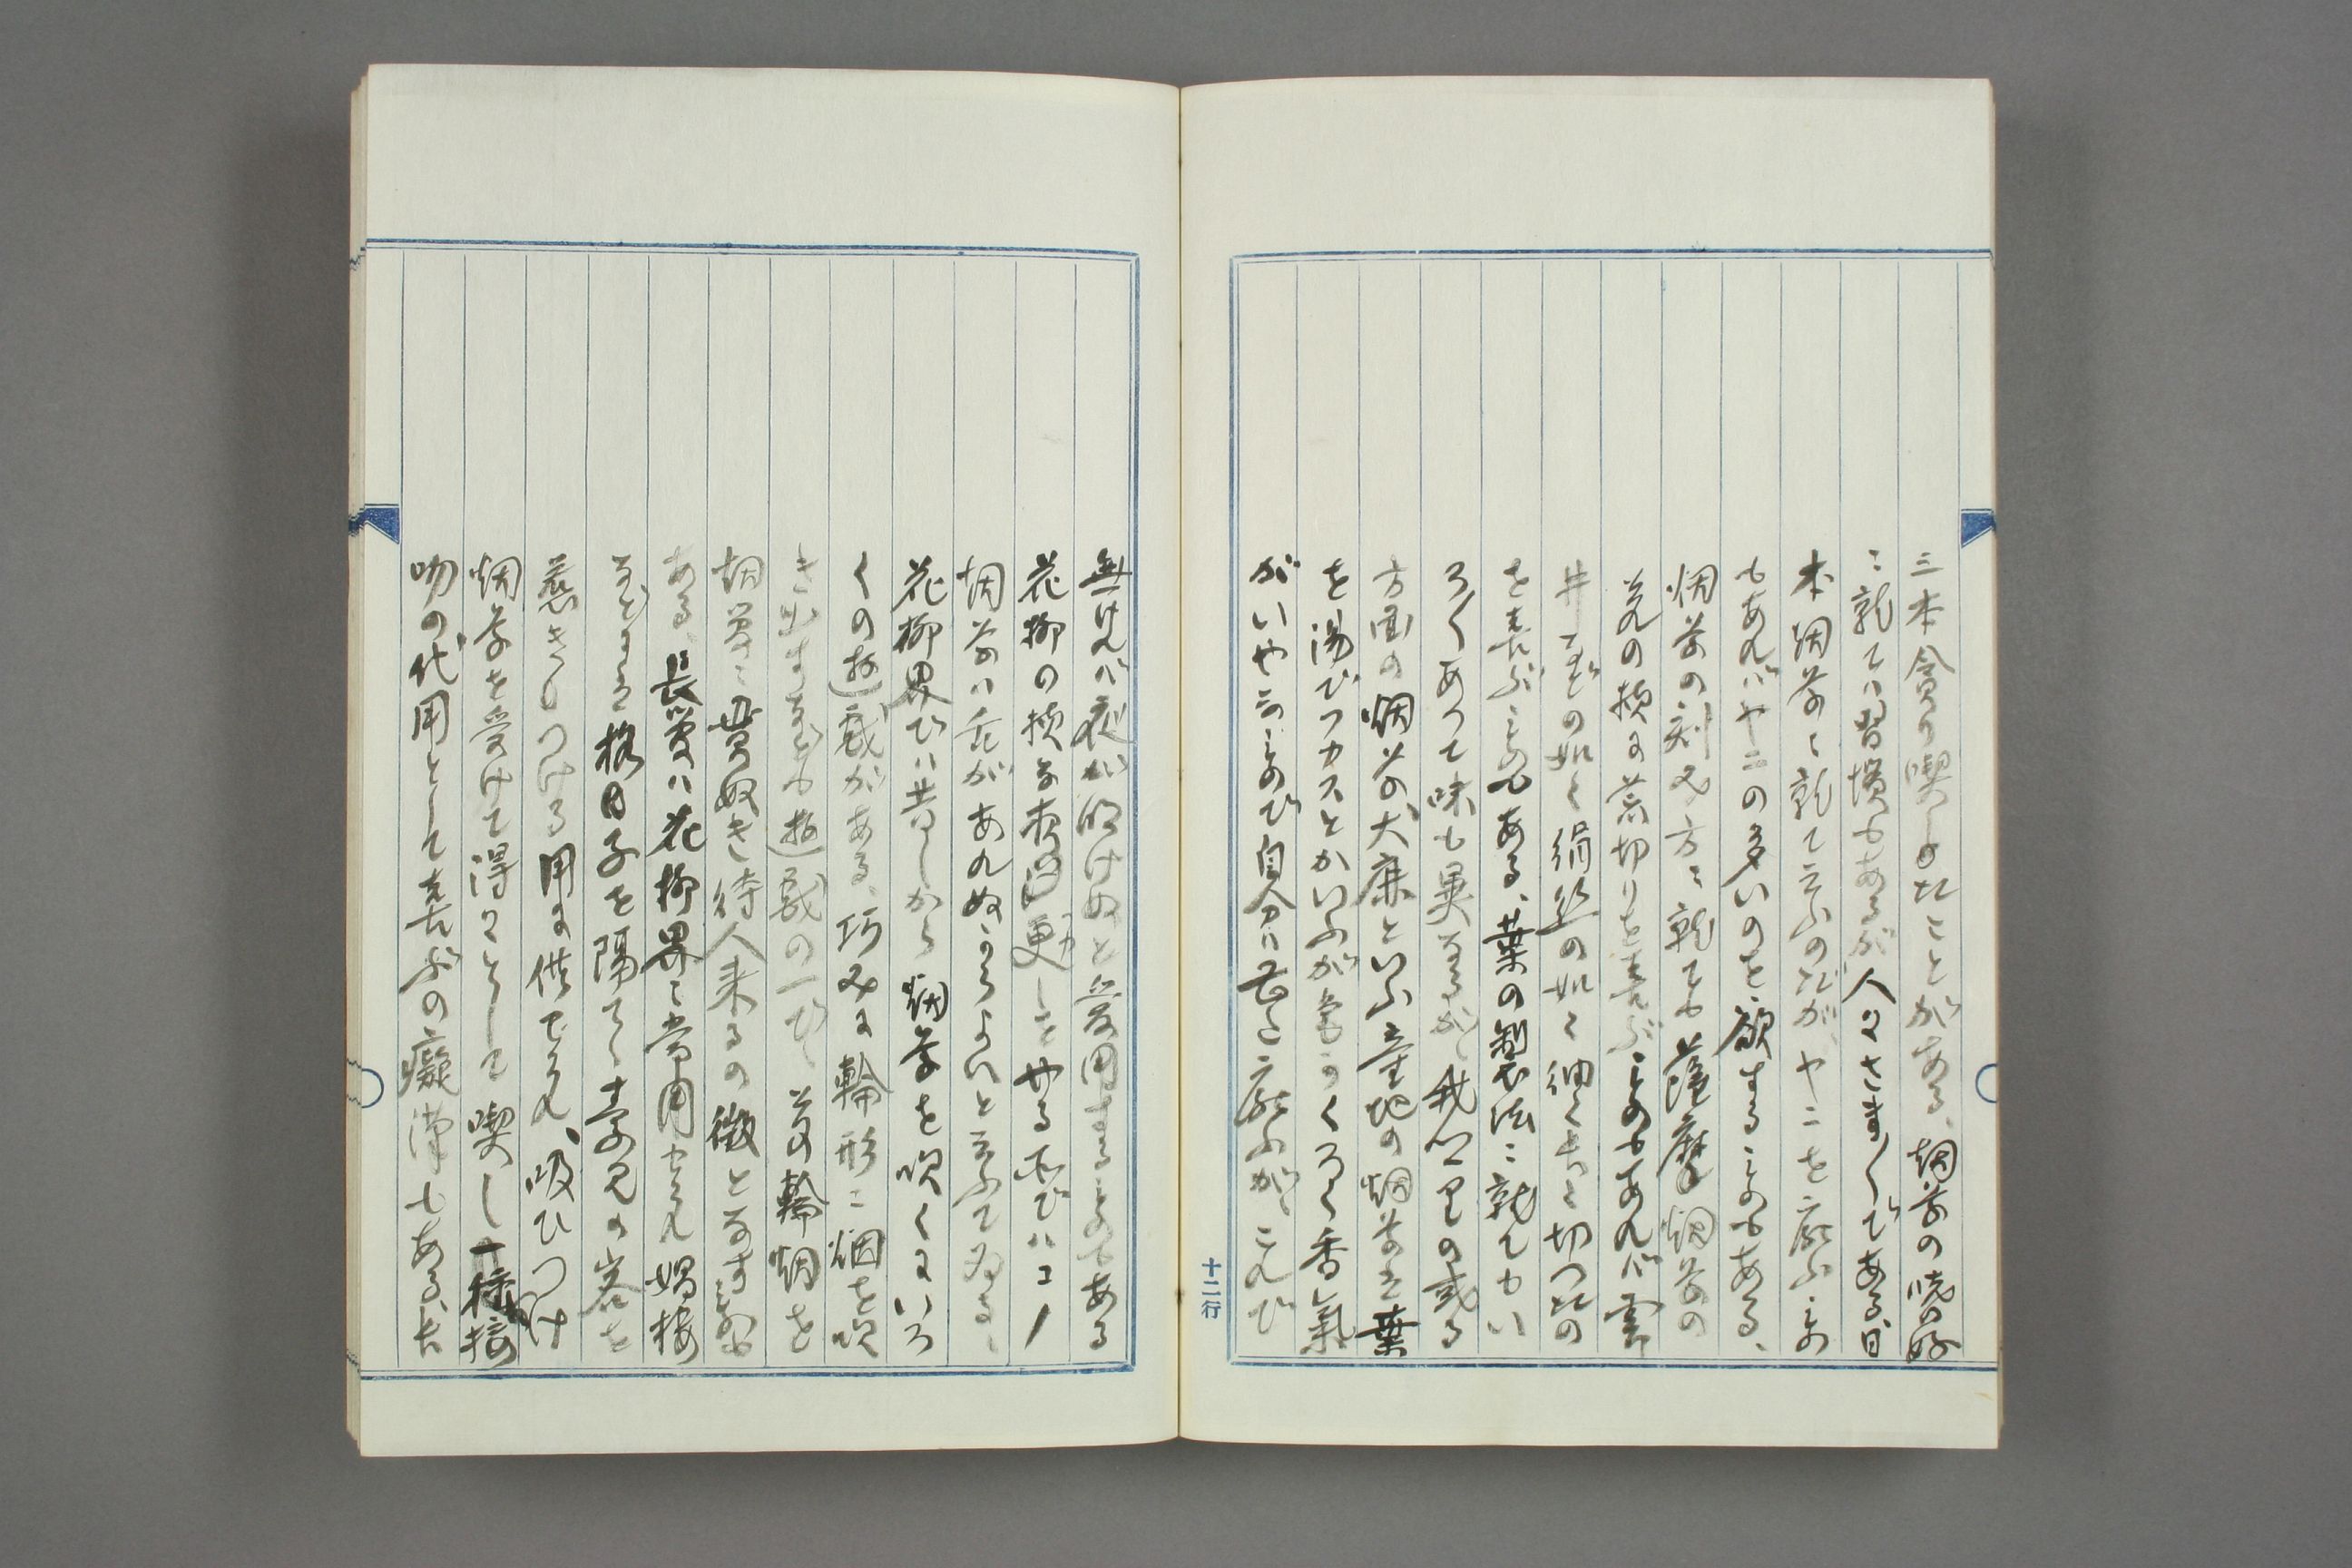 三本貪り喫したことがある、烟草の嗜好
ニ就ては習慣もあるが人々さま〴〵である、日
本烟草ニ就て云ふのだが、ヤニを厭ふもの
もあればヤニの多いのを欲するものもある、
烟草の刻み方ニ就ても薩摩烟草の
荒の様に荒切りを喜ぶものもあれば雲
井などの如く絹糸の如く細く長く切つたの
を喜ぶものもある、葉の製法ニ就てもい
ろ〳〵あつて味も異なるが、我
方面の烟草、大鹿といふ産地の烟草は葉
を湯でフカスとかいふが色もくろく香氣
がいやなもので自分ハ甚だ厭ふが、これで
無ければ夜が明けぬと愛用するものもある
花柳の様な夜を更しをやる所でハコノ
烟草ハ毛があれぬからよいと云ふてゐる、
花柳界でハ昔しから烟草を吹くにいろ
〳〵の遊戯がある、巧みに輪形ニ烟を吹
き出すなども遊戯の一で、
烟草ニ畳奴き待人来るの徴となすもの
ある、長煙ハ花柳界ニ常用せられ娼妓
などは格子を隔てゝ
惹きつける用に供せられ、吸ひつけ
烟草を受けて得々として喫し一種接
吻の代用として喜ぶの癡漢もある、長